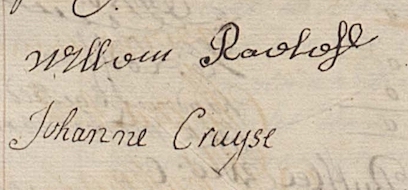 Willom Raoloff
Johanne Cruyse